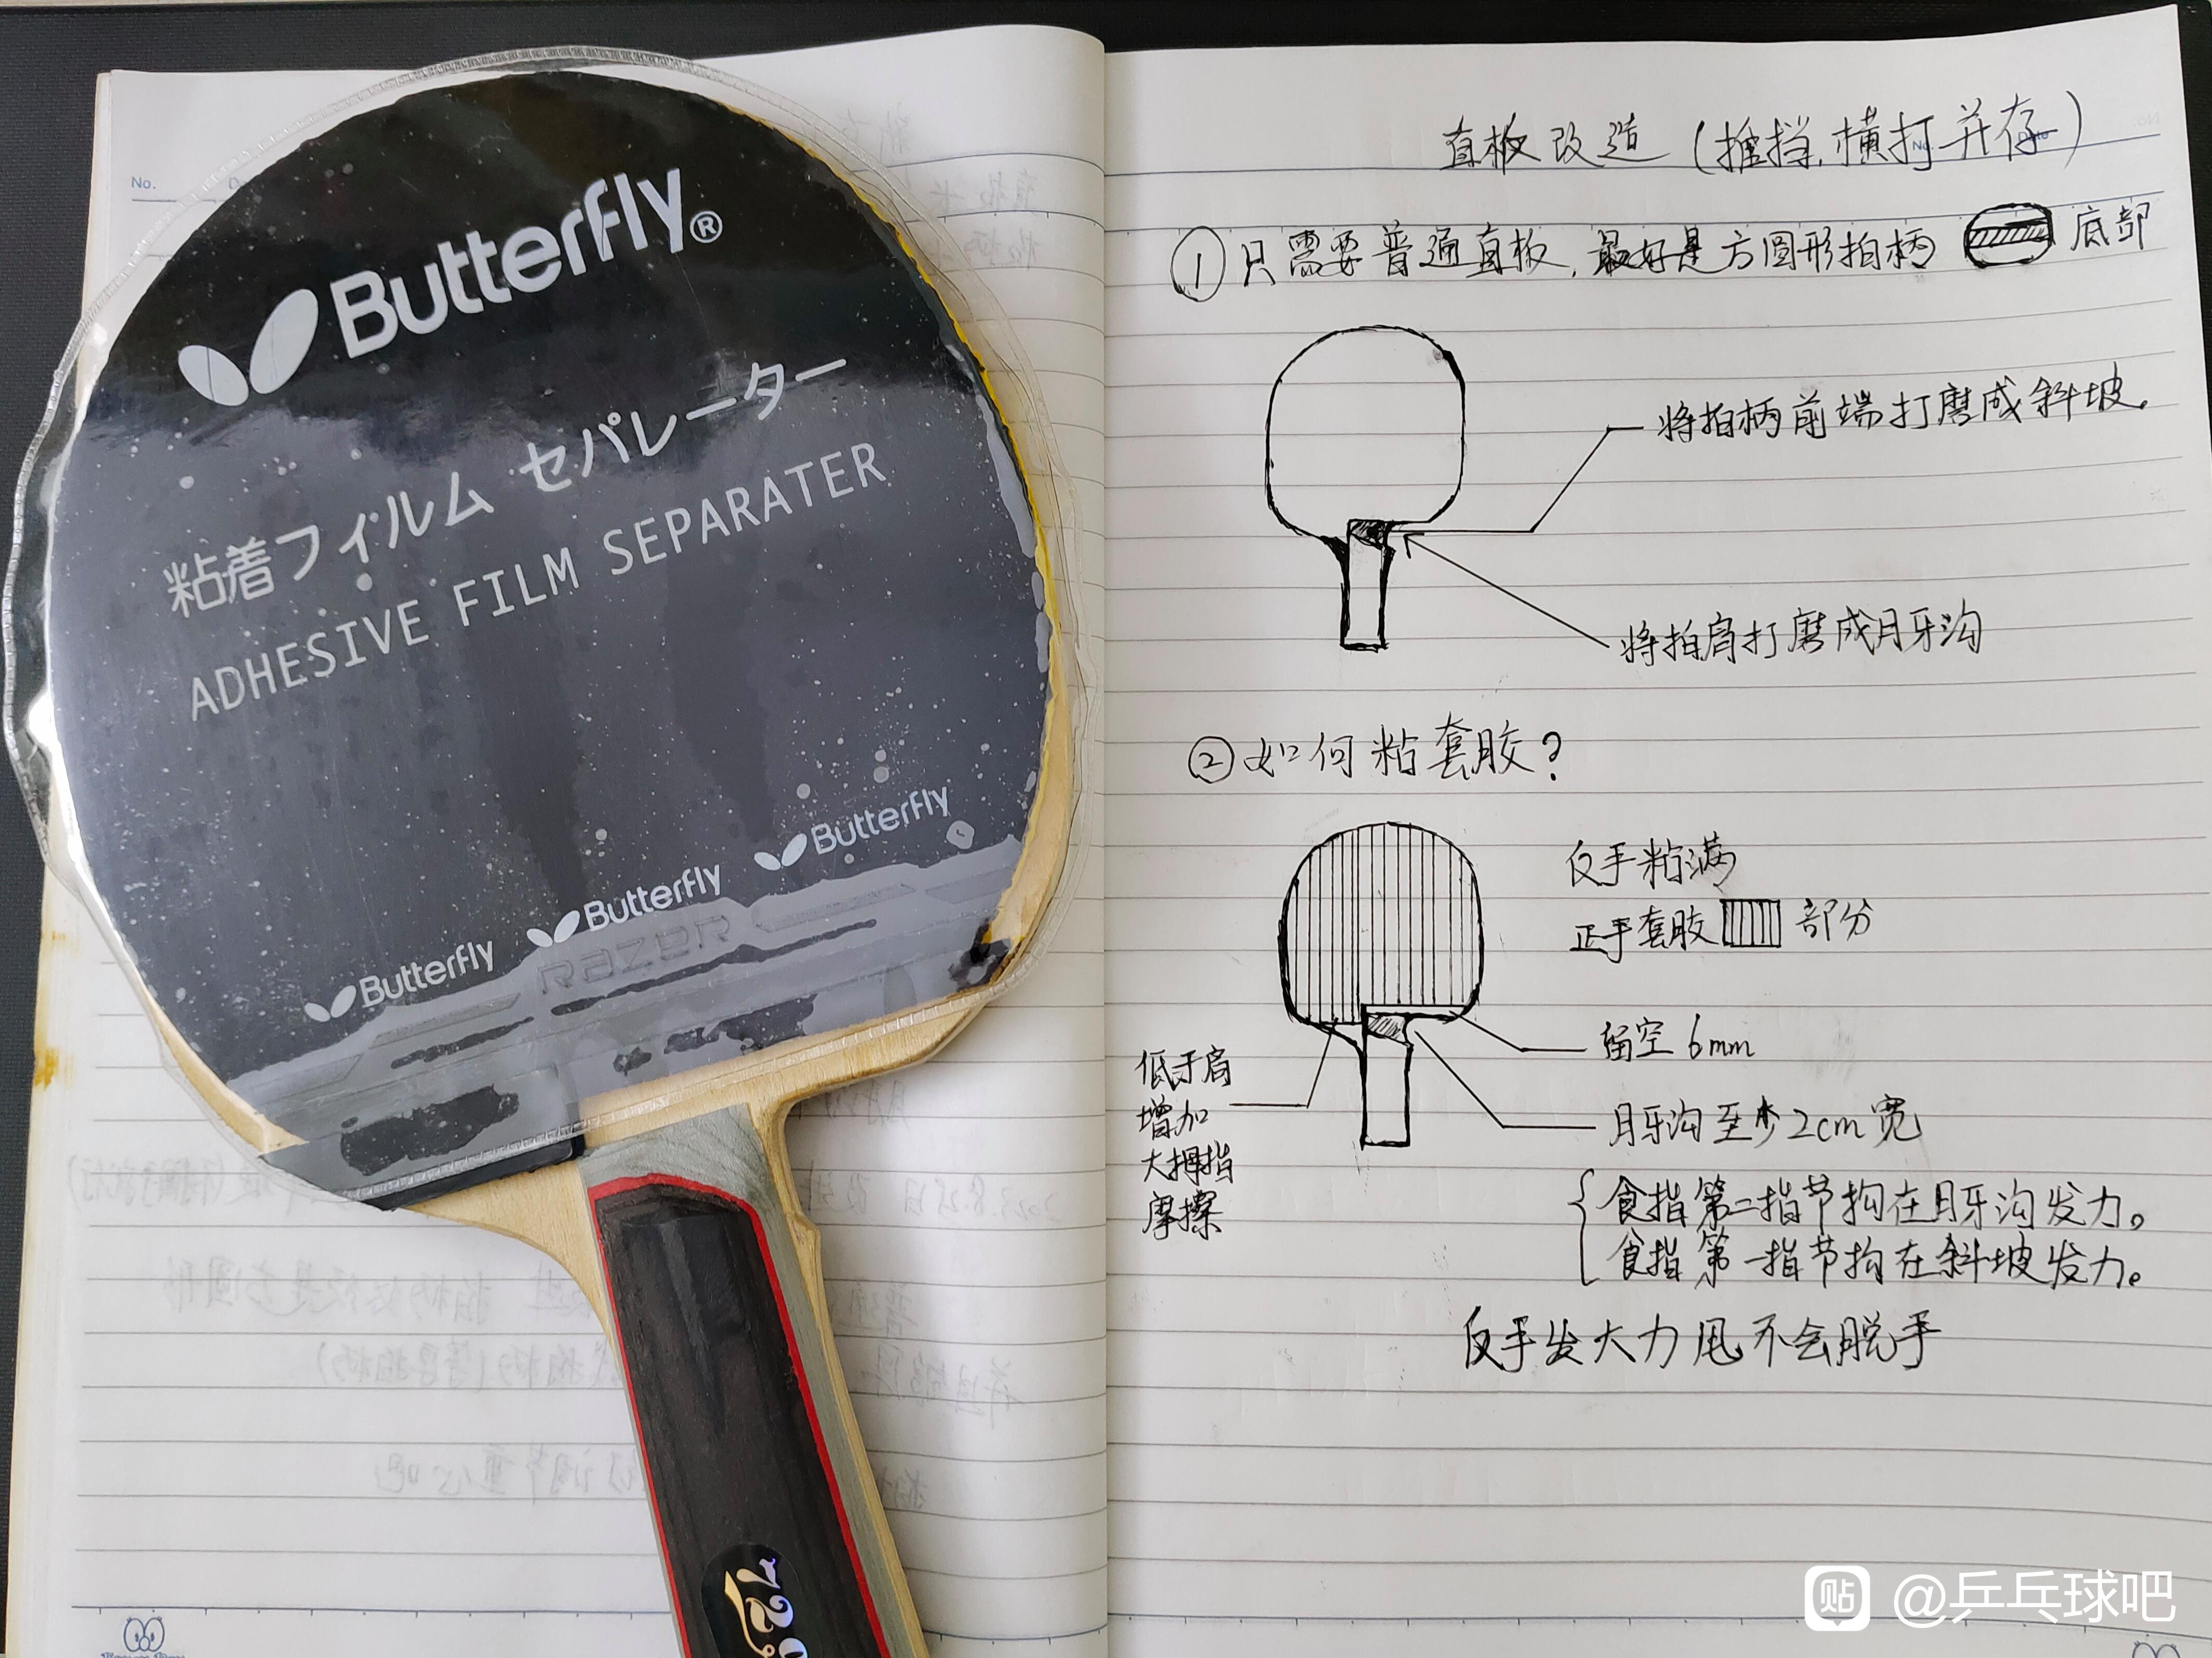 No.
Butterfly®
粘着フィルム セパレーター
ADHESIVE FILM SEPARATER
Butterfly
Butterfly
Butterfly
RAZER
729
No.
Date
直板改造（推挡，横打并存）
① 只需要普通直板，最好是方圆形拍柄 底部
将拍柄前端打磨成斜坡。
将拍肩打磨成月牙沟
② 如何粘套胶？
反手粘满
正手套胶 部分
留空6mm
低于肩
增加
大拇指
摩擦
月牙沟至少2cm宽
食指第二指节抅在月牙沟发力。
食指第一指节抅在斜坡发力。
反手发大力甩不会脱手
贴 @乒乓球吧